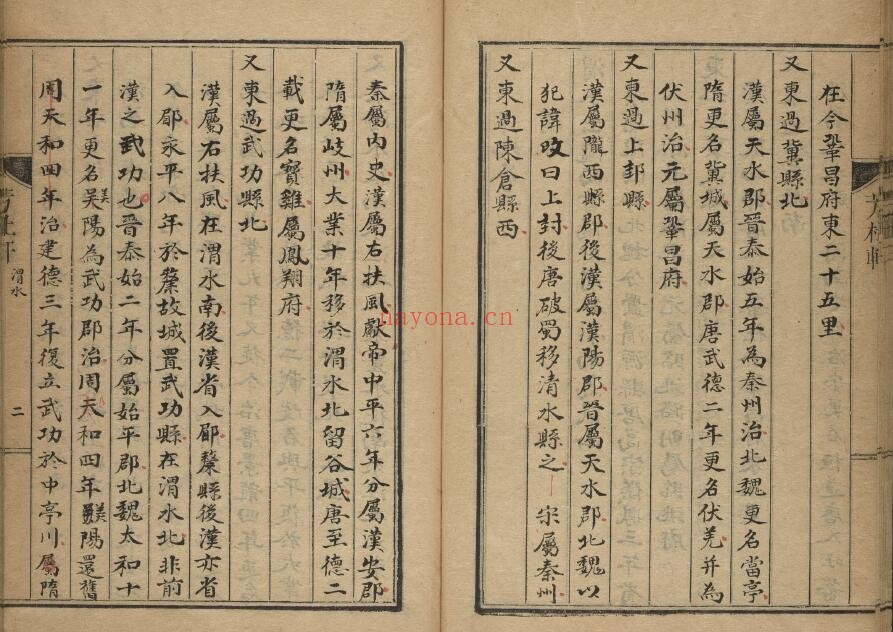 在今鞏昌府東二十五里
又東過冀縣北
漢屬天水郡晉泰始五年為秦州治北魏更名當亭
隋更名冀城屬天水郡唐武德二年更名伏羌并為
伏州治元屬鞏昌府
又東過上邽縣
漢屬隴西縣郡後漢屬漢陽郡晉屬天水郡北魏以
犯諱改曰上封後唐破蜀移清水縣之 宋屬秦州
又東過陳倉縣西
秦屬內史漢屬右扶風獻帝中平六年分屬漢安郡
隋屬岐州大業十年移於渭水北留谷城唐至德二
載更名寶雞屬鳳翔府
又東過武功縣北
漢屬右扶風在渭水南後漢省入郿斄縣後漢亦省
入郿永平八年於斄故城置武功縣在渭水北非前
漢之武功也晉泰始二年分屬始平郡北魏太和十
一年更名吴美陽為武功郡治周天和四年美陽還舊
周天和四年治建德三年復立武功於中亭川屬隋
渭水
二
nayona.cn